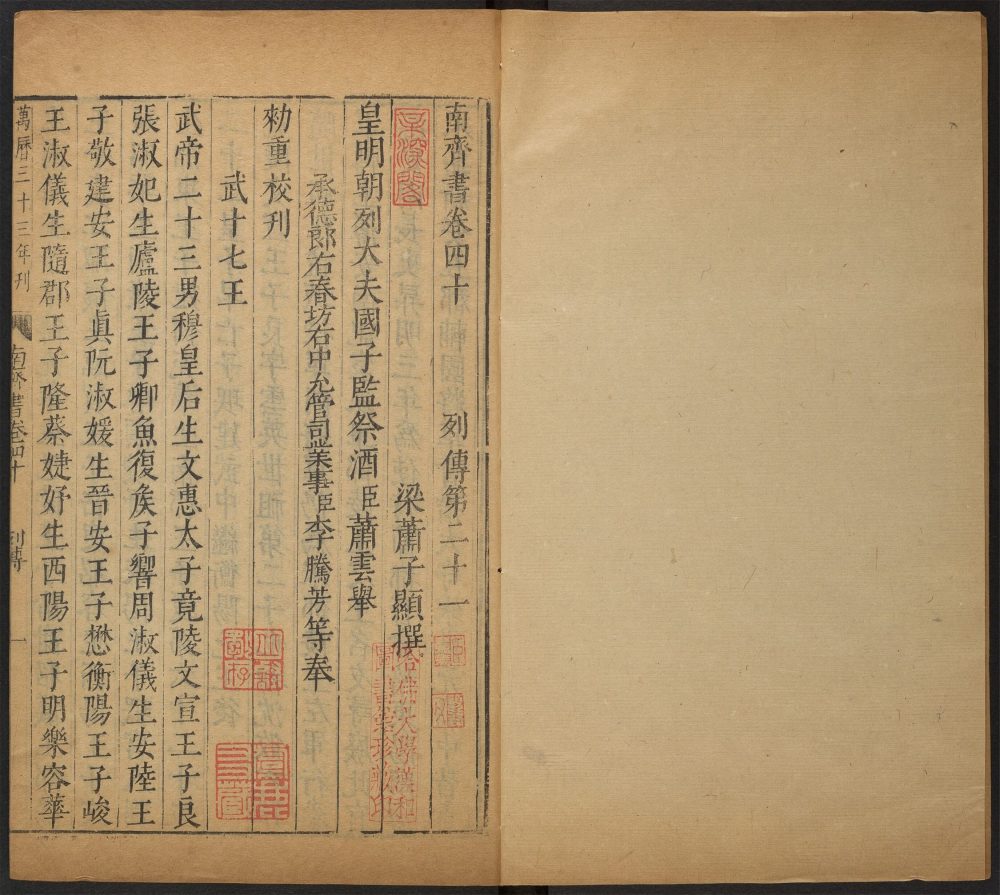 南齊書卷四十 列傳第二十一
梁蕭子顯撰
皇明朝列大夫國子監祭酒臣蕭雲舉
承德郎右春坊右中允管司業事臣李騰芳等奉
勑重校刊
武十七王
武帝二十三男穆皇后生文惠太子竟陵文宣王子良
張淑妃生廬陵王子卿魚復矦子響周淑儀生安陸王
子敬建安王子眞阮淑媛生晉安王子懋衡陽王子峻
王淑儀生隨郡王子隆蔡婕妤生西陽王子明樂容華
萬曆三十三年刊 南齊書卷四十 列傳 一
哈佛大學漢和
圖書館珍藏印